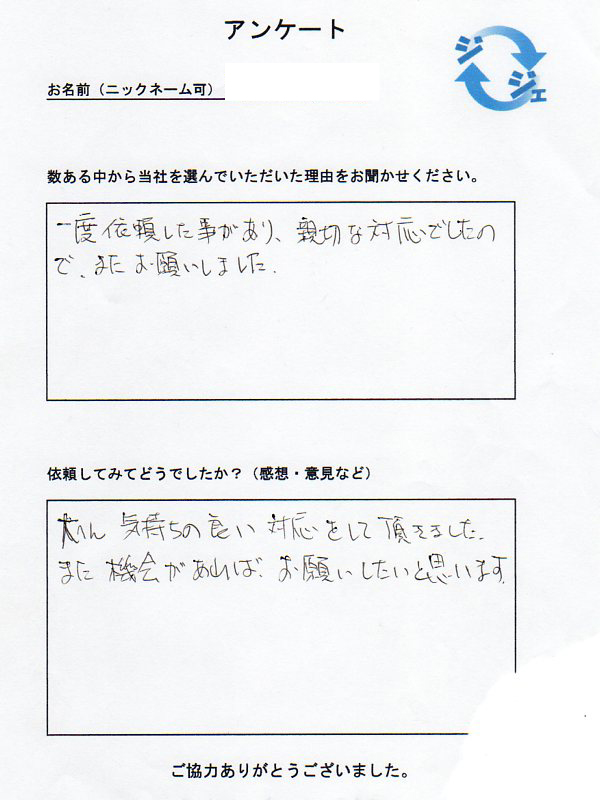 アンケート
ジジェ
お名前（ニックネーム可）
数ある中から当社を選んでいただいた理由をお聞かせください。
一度依頼した事があり、親切な対応でしたの
で、またお願いしました.
依頼してみてどうでしたか？（感想・意見など）
大へん 気持ちの良い 対応をして頂きました.
また 機会があれば、お願いしたいと思います.
ご協力ありがとうございました。